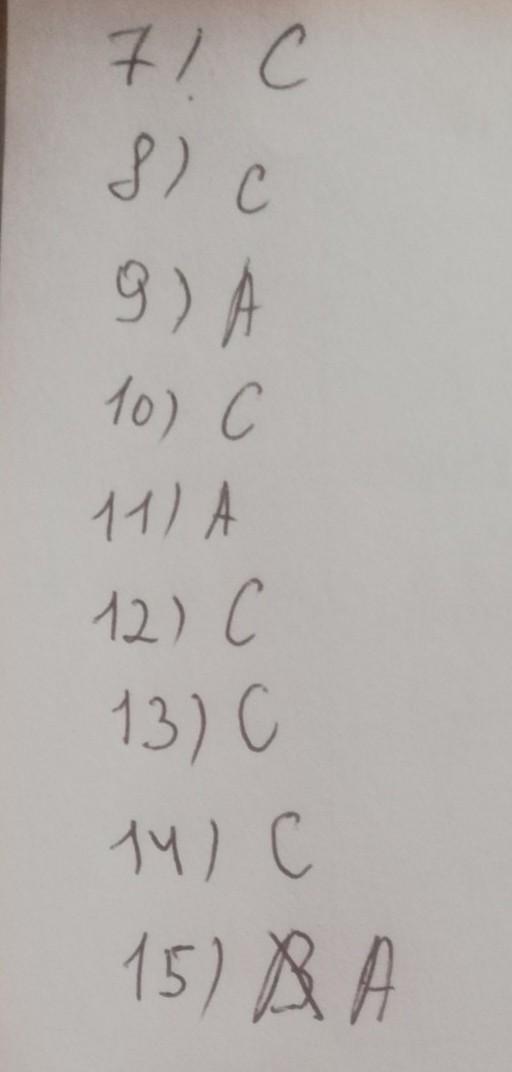 7) C
8) C
9) A
10) C
11) A
12) C
13) C
14) C
15) A